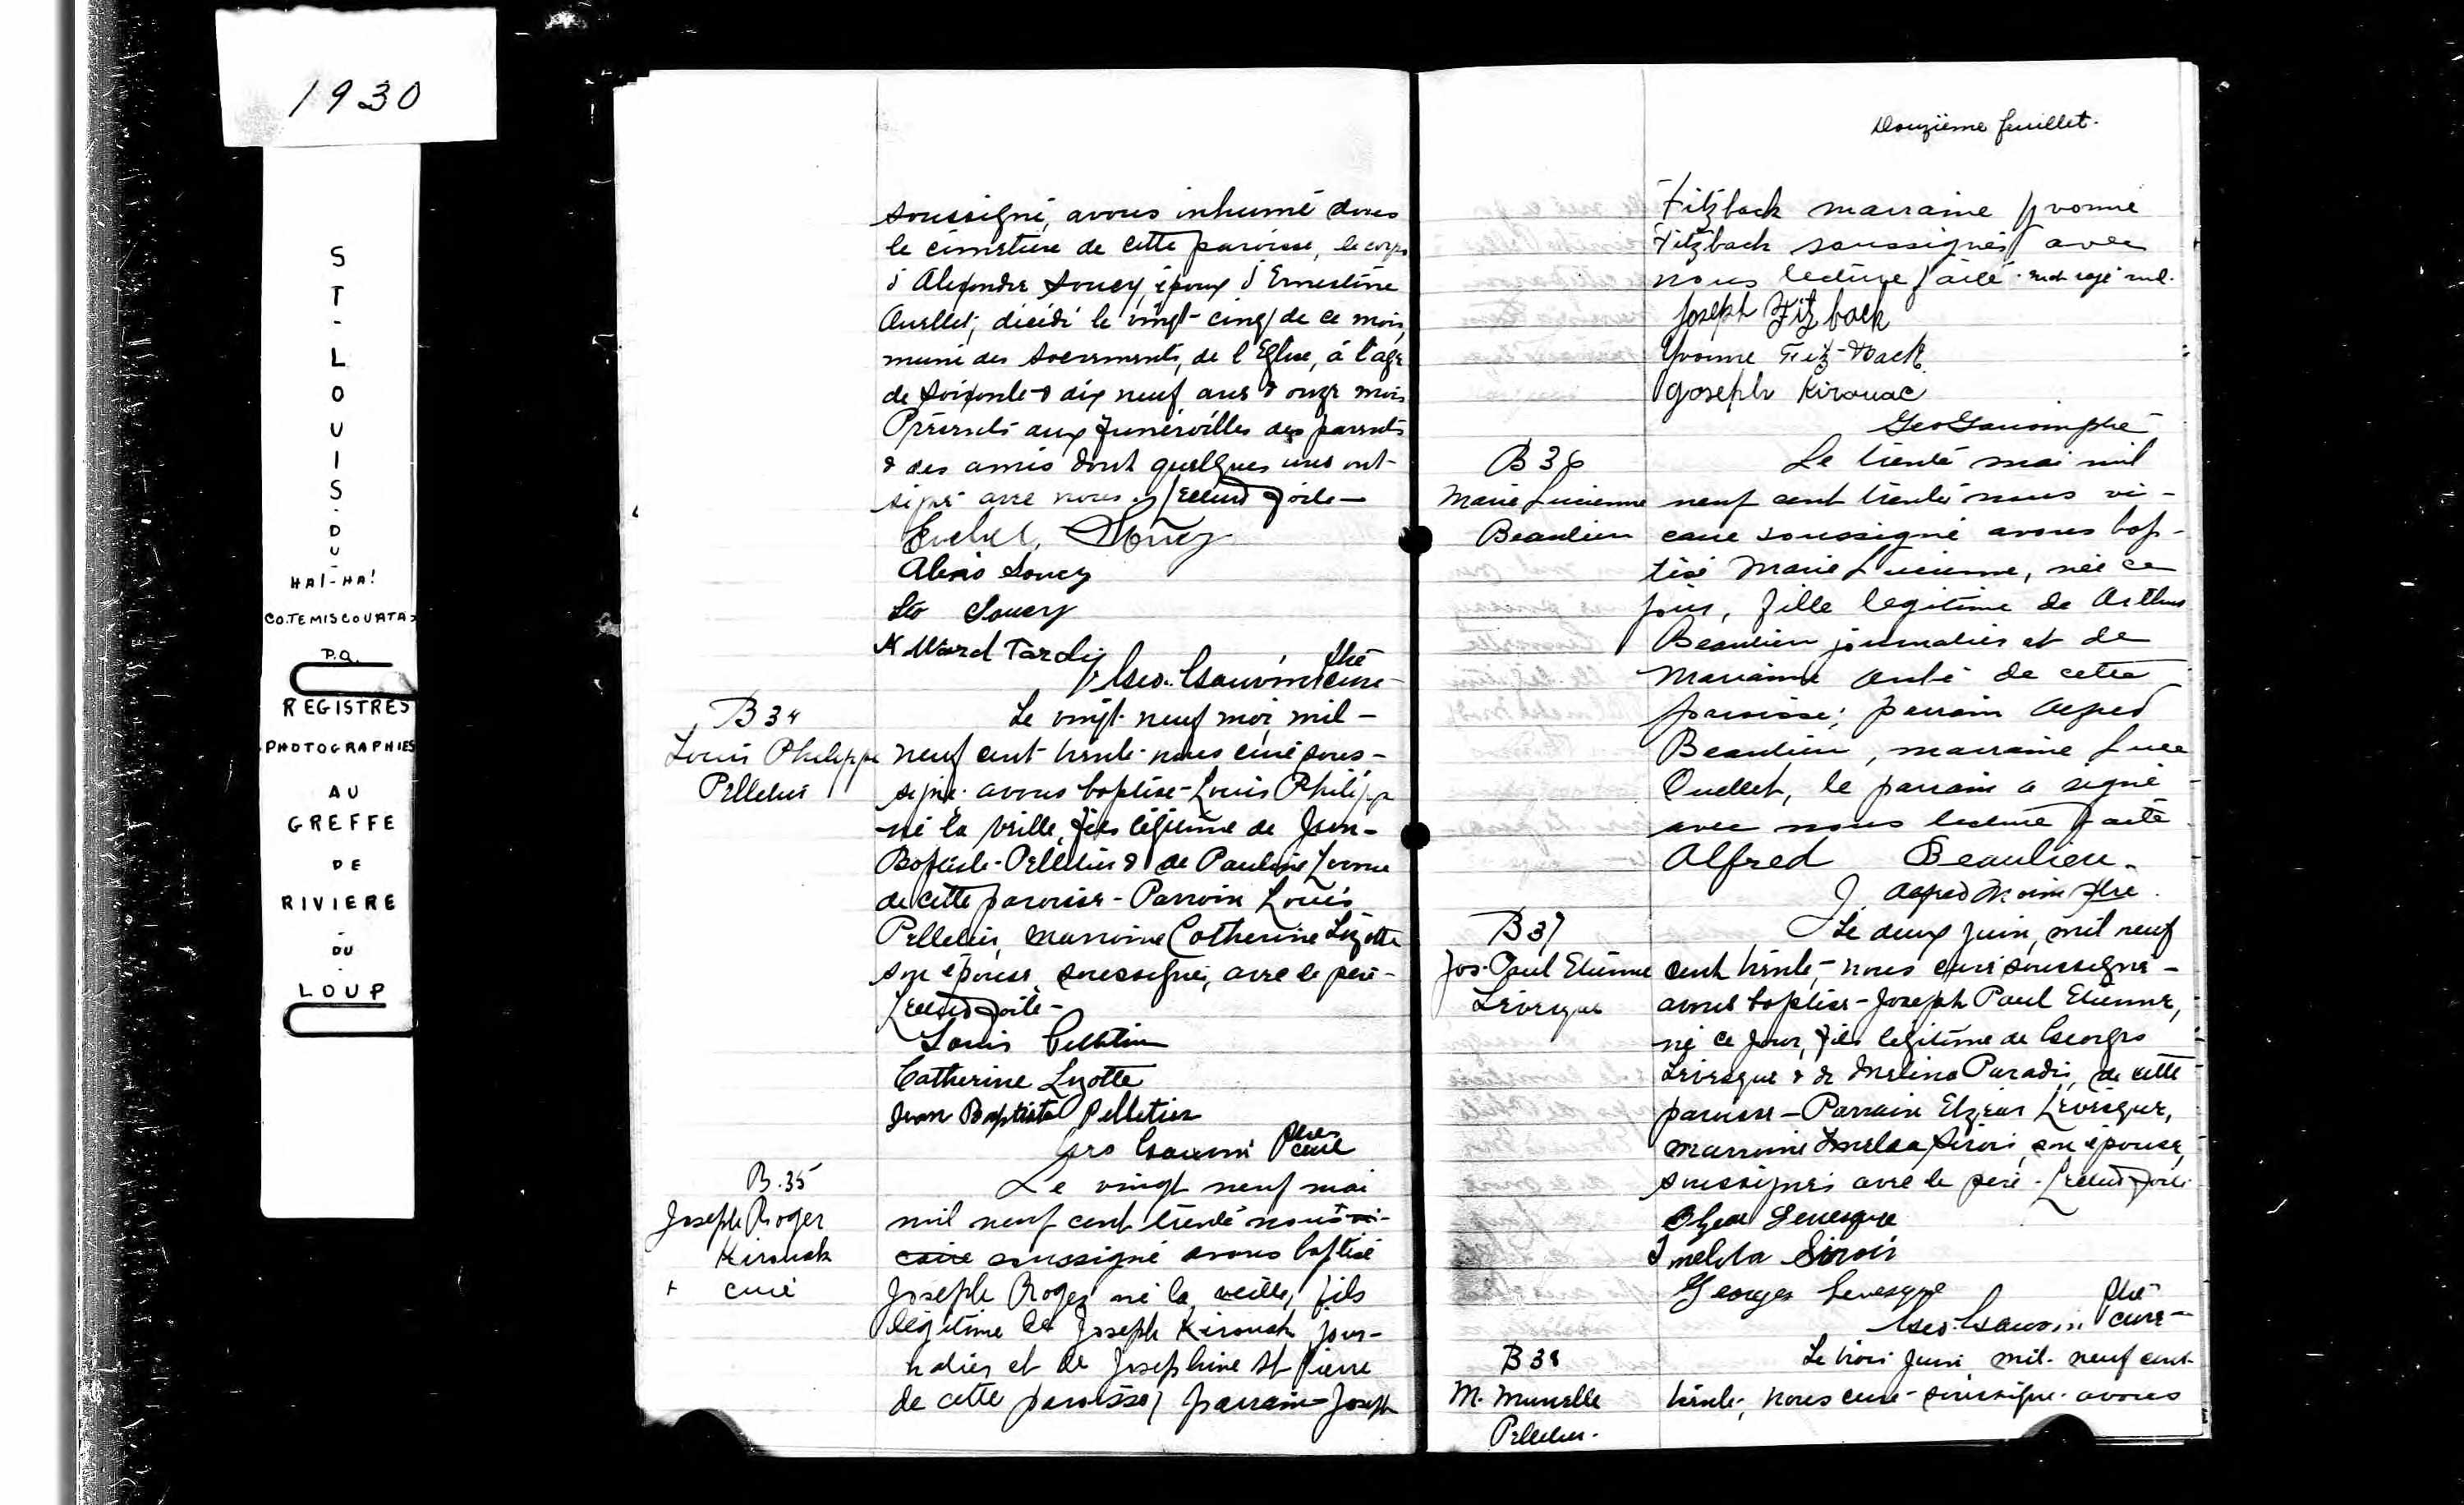 1930
ST-LOUIS-DU-
HA!-HA!
CO.TEMISCOUATA
P.Q.
REGISTRES
PHOTOGRAPHIES
AU
GREFFE
DE
RIVIERE
DU
LOUP
soussigné, avons inhumé dans
le cimetière de cette paroisse, le corps
d'Alexandre Soucy, époux d'Ernestine
Ouellet, décédé le vingt-cinq de ce mois,
muni des sacrements, de l'Eglise, à l'age
de soixante & dix neuf ans & onze mois
Présents aux funérailles des parents
& des amis dont quelques uns ont
signé avec nous. Lecture faite
Soucy
Alexis Soucy
Léo Soucy
Tardif
Geo. Gauvin ptre curé
B 34
Louis Philippe
Pelletier
Le vingt-neuf mai, mil-
neuf cent trente nous curé sous-
signé avons baptisé Louis Philippe
né la veille, fils légitime de Jean-
Baptiste Pelletier & de Pauline
de cette paroisse - Parrain Louis
Pelletier, marraine Catherine Lizotte
son épouse, soussignés, avec le père -
Lecture faite -
Louis Pelletier
Catherine Lizotte
Jean Baptiste Pelletier
Geo Gauvin ptre curé
B.35
Joseph Roger
Kirouak
+ curé
Le vingt neuf mai
mil neuf cent trente nous + vi-
caire soussigné avons baptisé
Joseph Roger né la veille, fils
légitime de Joseph Kirouak, jour-
nalier et de Josephine St Pierre
de cette paroisse, parrain Joseph
Douzième feuillet.
Fitzback marraine Yvonne
Fitzback soussignés avec
nous lecture faite. mot rayé nul.
Joseph Fitzback
Yvonne Fitz-Back
Joseph Kirouac
Geo Gauvin ptre
B 36
Marie Lucienne
Beaulieu
Le trente mai mil
neuf cent trente nous vi-
caire soussigné avons bap-
tisé Marie Lucienne, née ce
jour, fille legitime de Arthur
Beaulieu journalier et de
Marianne Aubé de cette
paroisse; parrain Alfred
Beaulieu, marraine Luce
Ouellet, le parrain a signé
avec nous lecture faite
Alfred Beaulieu.
J. Alfred Morin Ptre.
B37
Jos. Paul Etienne
Lévesque
Le deux juin, mil neuf
cent trente, nous curé soussigné
avons baptisé - Joseph Paul Etienne,
né ce jour, fils legitime de Georges
Lévesque & de Mélina Paradis, de cette
paroisse - Parrain Elzéar Lévesque,
marraine Imelda Sirois, son épouse,
soussignés avec le père - Lecture faite
Elzear Levesque
Imelda Sirois
Georges Levesque
Geo. Gauvin ptre curé
B 38
M. Murielle
Pelletier.
Le trois juin mil neuf cent
trente, nous curé soussigné avons